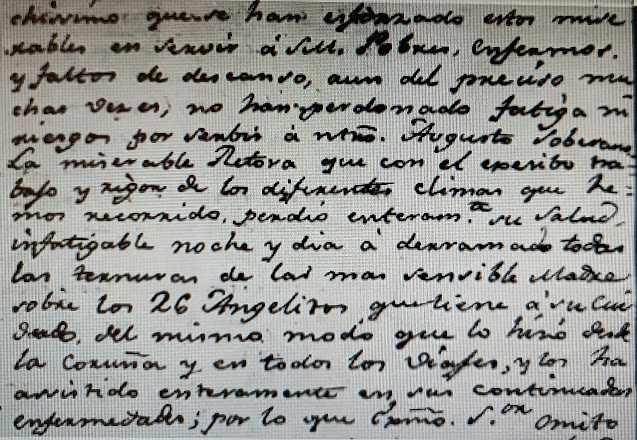 chisimo que se han esforzado estos mise
rables en servir á S.M. Pobres, enfermos,
y faltos de descanso, aun del preciso mu
chas vezes, no han perdonado fatiga ni
riesgos por serbir á ntrô. Augusto Soberano=
La miserable Retora que con el excesibo tra=
bajo y rigor de los diferentes climas que he=
mos recorrido, perdió enteram.te su Salud,
infatigable noche y dia á derramado todas
las ternuras de la mas sensible Madre
sobre los 26 Angelitos que tiene á su Cui
dado, del mismo modo que lo hizó desde
la Coruña y en todos los Viajes, y los ha
asistido enteramente en sus continuadas
enfermedades; por lo que Exmô. S.or Omito